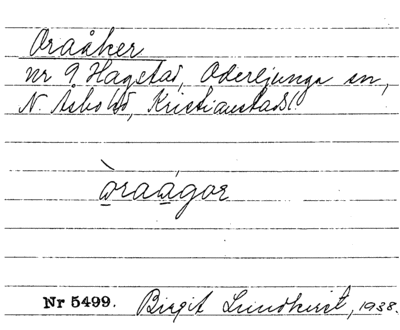 Oraåker
nr 9 Hagstad, Oderljunga sn,
N. Åsbo hd, Kristianstads l.
òraágor
Nr 5499. Birgit Lundkvist, 1938.